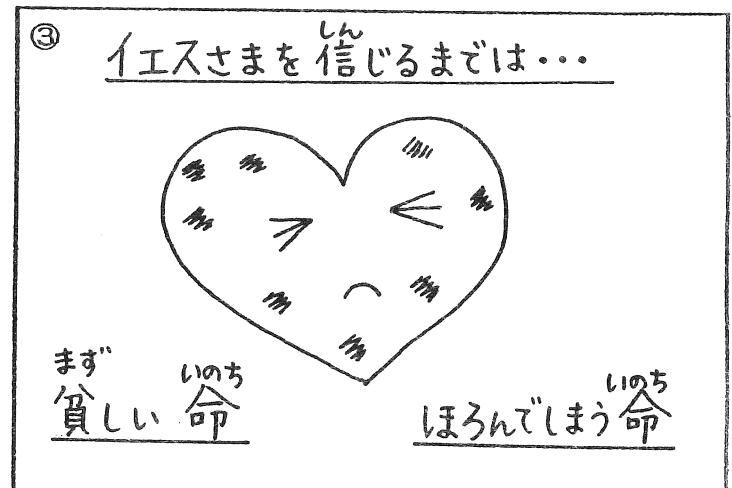 ③
イエスさまを信じるまでは・・・
しん
まず
貧しい命
いのち
ほろんでしまう命
いのち